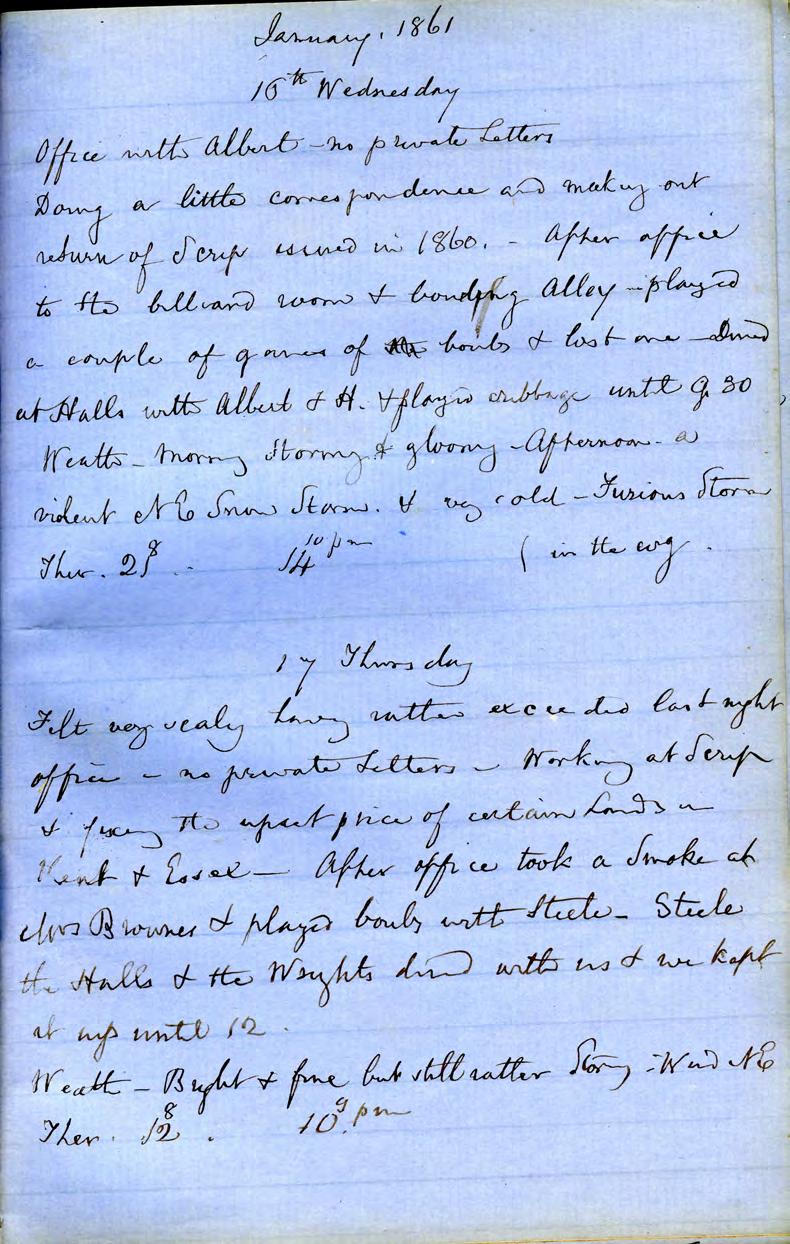 January. 1861
16th Wednesday
Office with Albert - no private Letters
Doing a little correspondence and making out
return of Scrip issued in 1860. - After office
to the billiard room & bowling Alley - played
a couple of games of bowls & lost one - Dined
at Halls with Albert & H. & played cribbage until 9.30
Weath - Morng Stormy & gloomy - Afternoon - a
violent N E Snow Storm. & very cold - Furious Storm
Ther. 2 8 .. 14 10 pm ( in the evg .
17 Thursday
Felt very sealy having rather exceeded last night
office - no private Letters - Working at Scrip
& fixing the upset price of certain Lands in
Kent & Essex - After office took a Smoke at
Mrs Brownes & played bowls with Steele - Steele
the Halls & the Wrights dined with us & we kept
it up until 12.
Weath - Bright & fine but still rather Stormy - Wind N E
Ther. 12 8 . 10 9 pm